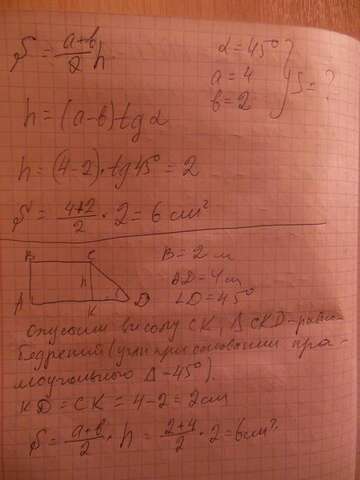 S = (a+b)/2 h
α = 45°
a = 4
b = 2
S = ?
h = (a-b) tg α
h = (4-2) · tg 45° = 2
S = (4+2)/2 · 2 = 6 см²
B C
h
A K D
B = 2 см
AD = 4 см
∠D = 45°
Опустим высоту CK, Δ CKD - равно-
бедренный (углы при основании пря-
моугольного Δ - 45°).
KD = CK = 4 - 2 = 2 см
S = (a+b)/2 · h = (2+4)/2 · 2 = 6 см².